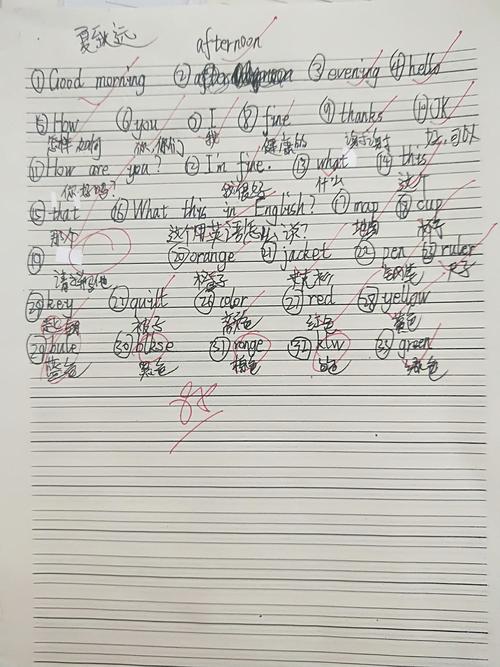 夏 远 afternoon
① Good morning ② ③ evening ④ hello
⑤ How ⑥ you ⑦ I ⑧ fine ⑨ thanks ⑩ OK
怎样 如何 你 你们 我 健康的 谢谢 好,可以
⑪ How are you? ⑫ I'm fine. ⑬ what ⑭ this
你好吗? 我很好 什么 这个
⑮ that ⑯ What this in English? ⑰ map ⑱ cup
那个 这个用英语怎么说? 地图 杯子
⑲ ⑳ orange ㉑ jacket ㉒ pen ㉓ ruler
橙子 夹克衫 钢笔 尺子
㉔ key ㉕ quilt ㉖ color ㉗ red ㉘ yellow
被子 颜色 红色 黄色
㉙ bule ㉚ blkse ㉛ ronge ㉜ ktw ㉝ green
蓝色 黑色 橙色 白色 绿色
88